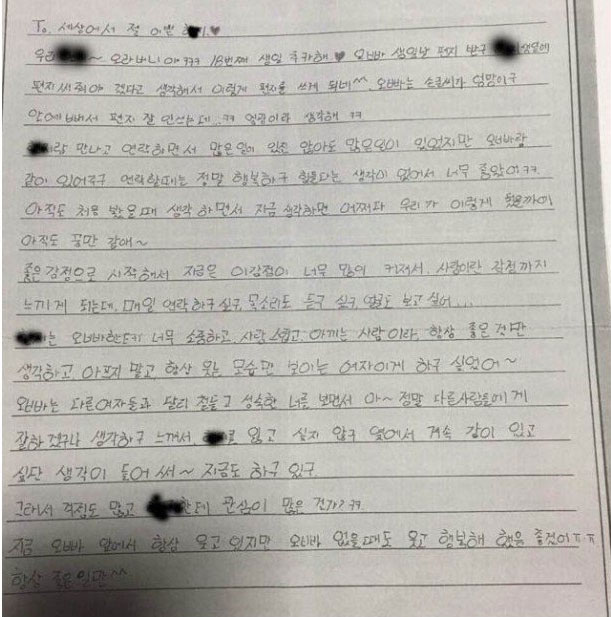 To. 세상에서 젤 이쁜
우리 ~ 오라버니야 ㅋㅋ 18번째 생일 축하해♥ 오빠가 생일날 편지 받구 생일에
편지써줘야 겠다고 생각해서 이렇게 편지를 쓰게 되네^^ 오빠는 손글씨가 엉망이구
안예뻐서 편지 잘 안쓰는데..ㅋㅋ 영광이라 생각해 ㅋㅋ
랑 만나고 연락하면서 많은일이 있진 않아도 많은일이 있었지만 오빠랑
같이 있어주구 연락할때는 정말 행복하구 힘들다는 생각이 없어서 너무 좋았어ㅋㅋ
아직도 처음 봤을때 생각하면서 지금 생각하면 어쩌다 우리가 이렇게 됐을까
아직도 꿈만 같애~
좋은감정으로 시작해서 지금은 이감정이 너무 많이 커져서 사랑이란 감정까지
느끼게 되는데. 매일 연락하구 싶구 목소리도 듣구 싶구 얼굴도 보고싶어...
는 오빠한테 너무 소중하고 사랑스럽고 아끼는 사람이라 항상 좋은것만
생각하고 아프지 말고 항상 웃는 모습만 보이는 여자이게 하구 싶었어~
오빠는 다른여자들과 달리 철들고 성숙한 너를 보면서 아~ 정말 다른사람들에게
잘하겠구나 생각하구 느껴서 로 잃고 싶지 않구 옆에서 계속 같이 있고
싶단 생각이 들어써~ 지금도 하구 있구
그래서 걱정도 많고 한테 관심이 많은 건가?ㅋㅋ
지금 오빠 앞에서 항상 웃고 있지만 오빠 없을때도 웃고 행복해 했음 좋겠어ㅠㅠ
항상 좋은일만^^